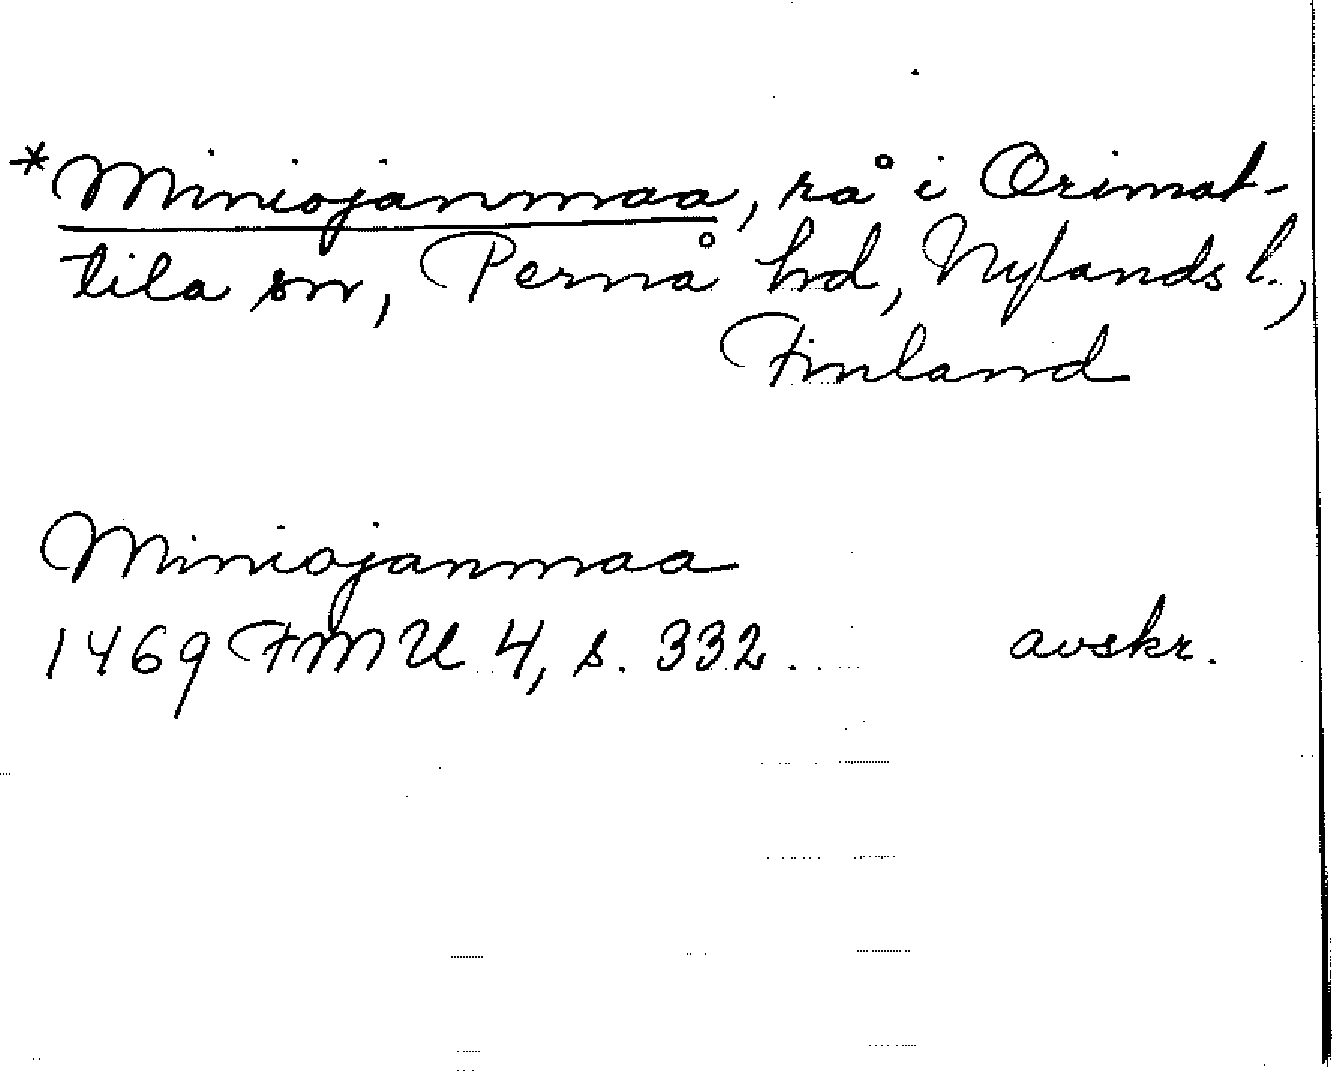 *Miniojanmaa, rå i Orimat-
tila sn, Pernå hd, Nylands l.,
Finland
Miniojanmaa
1469 FMU 4, s. 332. avskr.